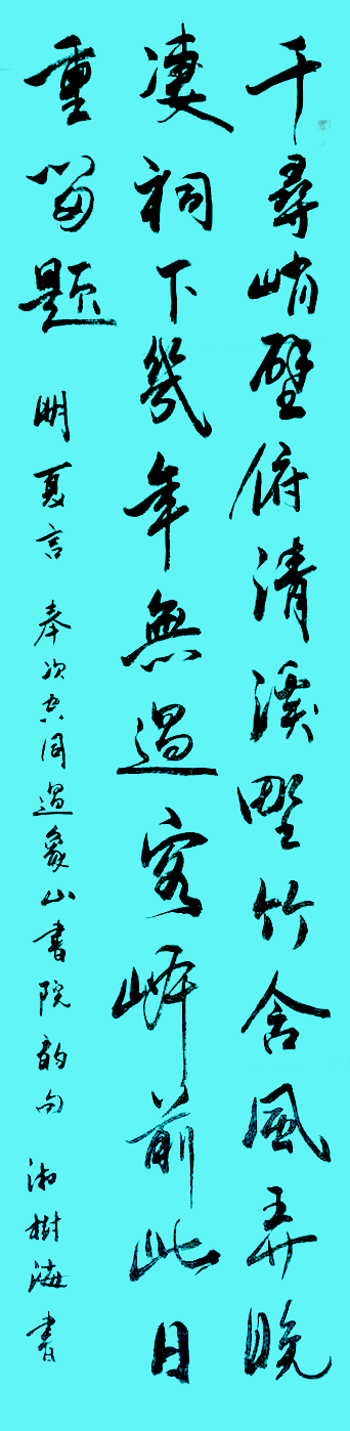 千尋峭壁俯清溪野竹含風弄晚
凄祠下幾年無過客峰前此日
重留题 明夏言 奉次空同過象山書院韵句 樹海書